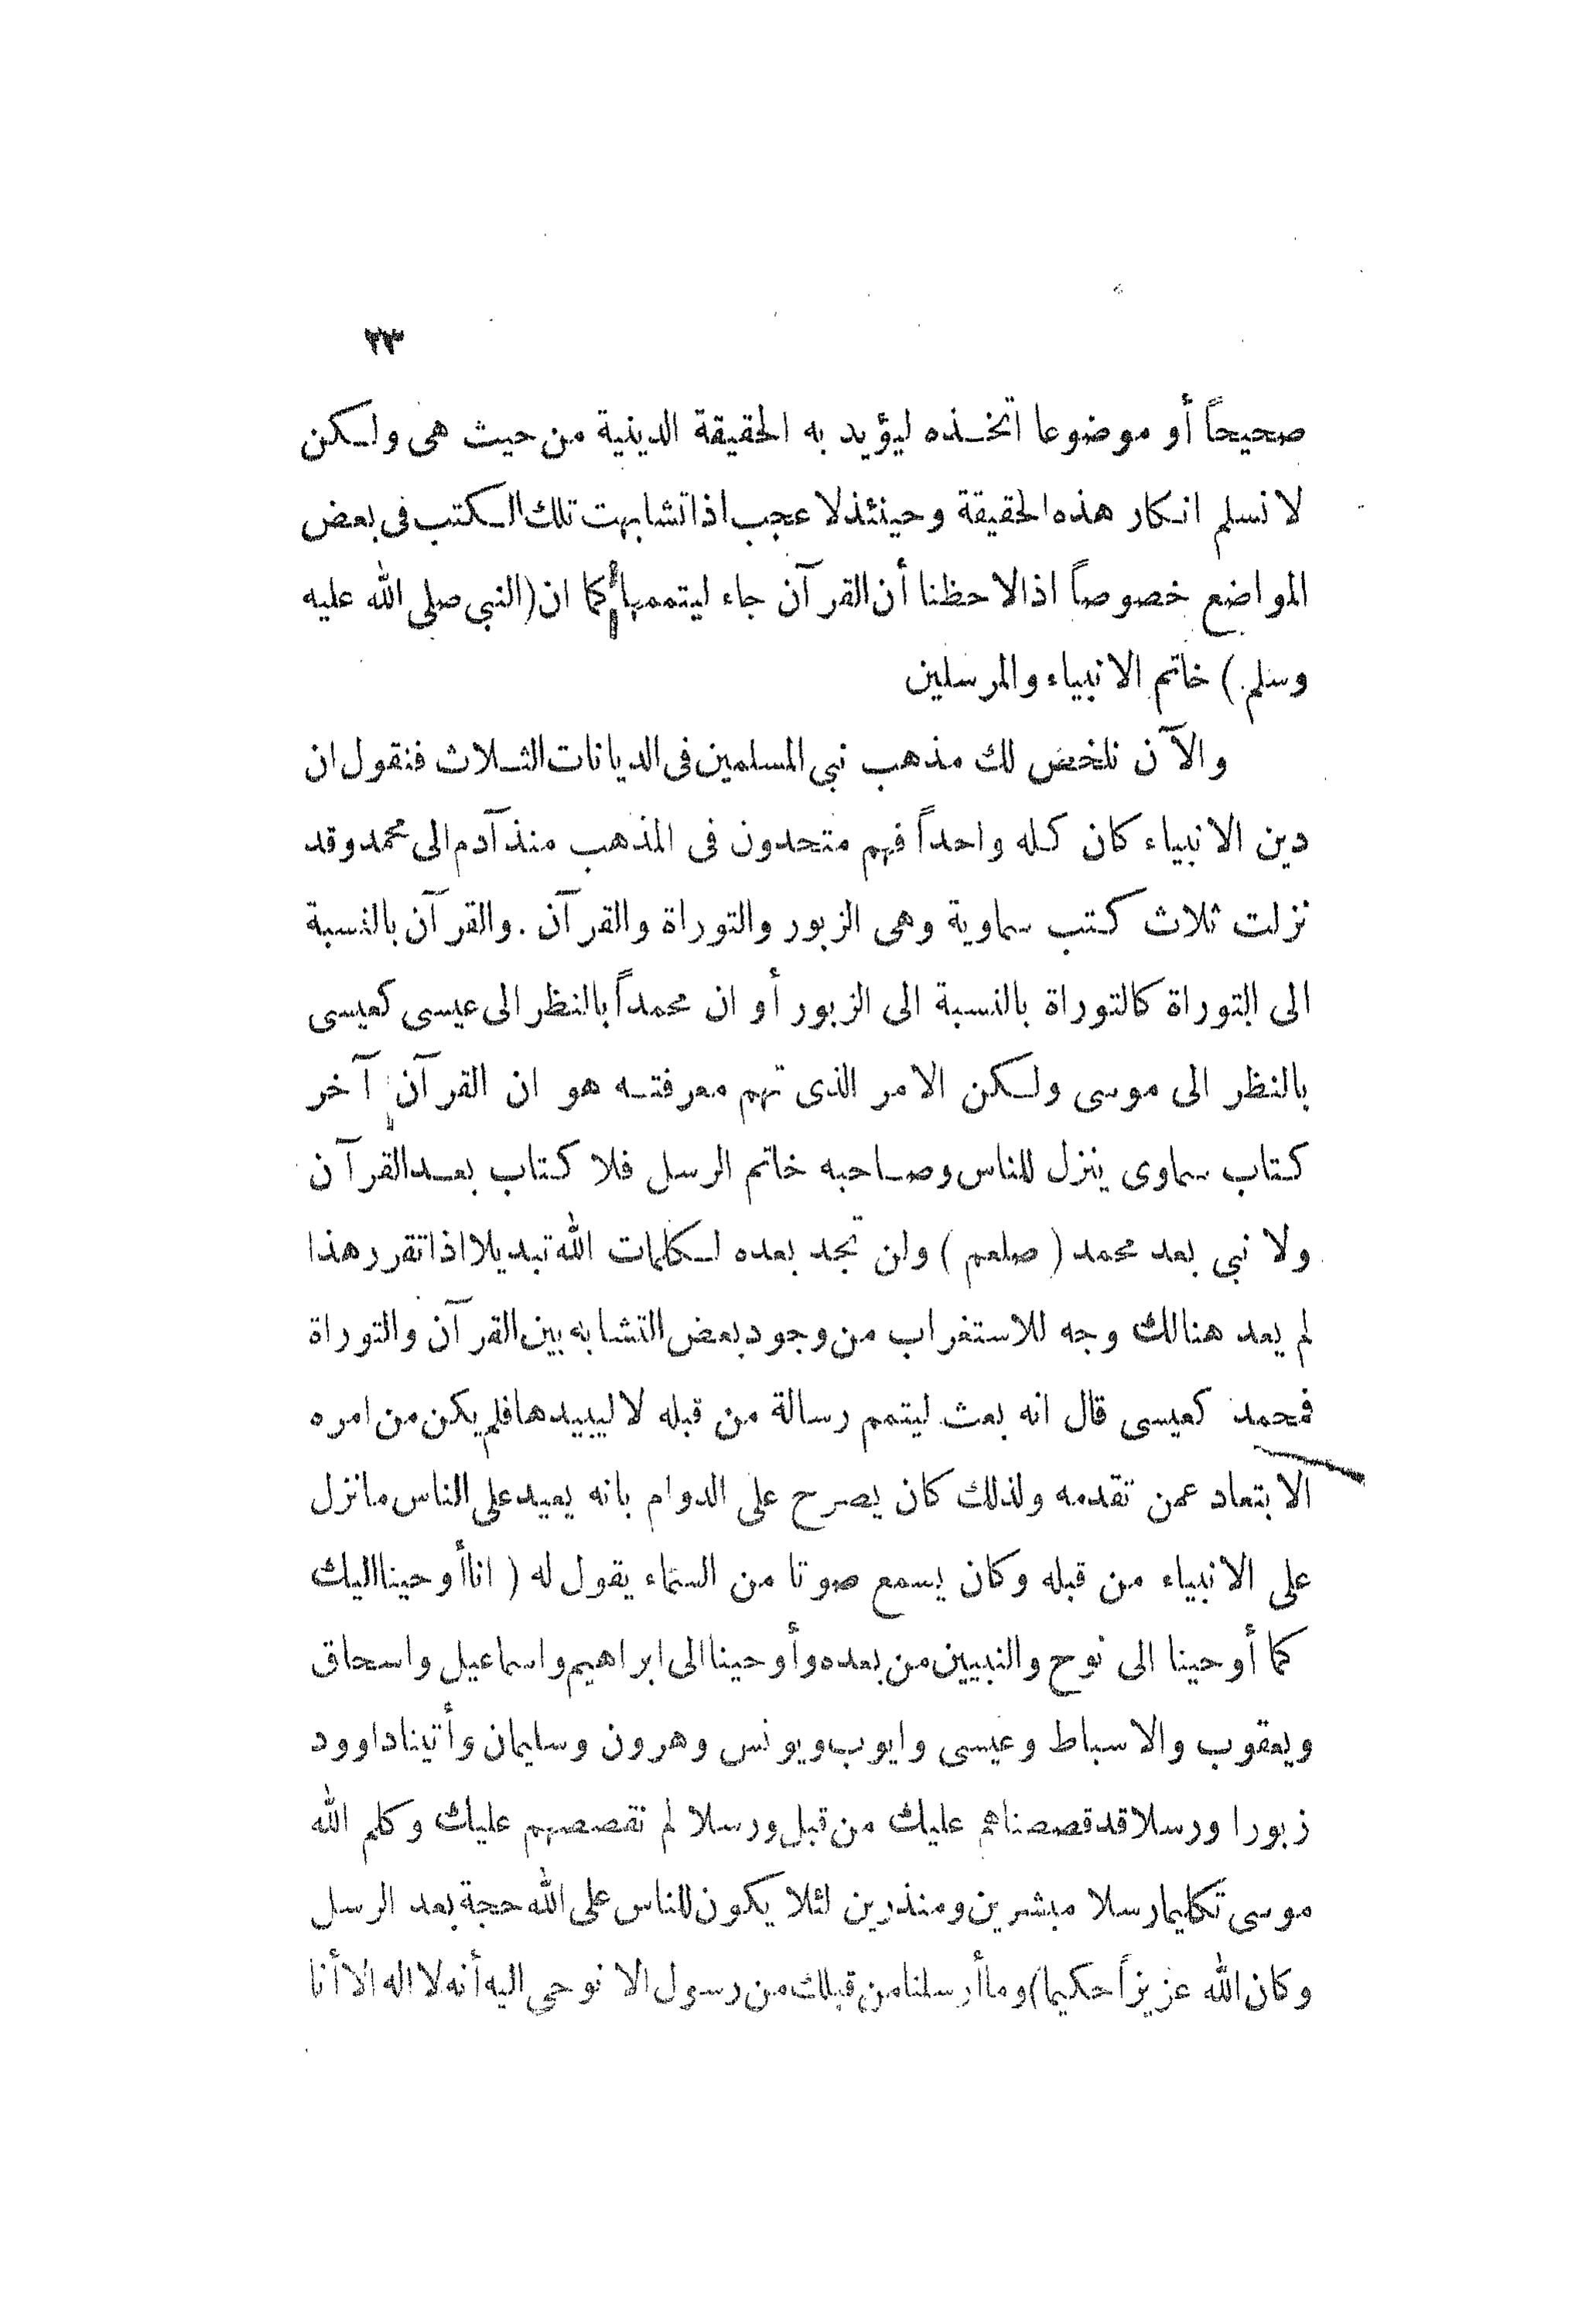 ٢٣
صحيحاً أو موضوعا اتخذه ليؤيد به الحقيقة الدينية من حيث هى ولكن
لا نسلم انكار هذه الحقيقة وحينئذ لا عجب اذا تشابهت تلك الكتب فى بعض
المواضع خصوصاً اذا لاحظنا أن القرآن جاء ليتممها كما ان (النبي صلى الله عليه
وسلم) خاتم الانبياء والمرسلين
والآن نلخص لك مذهب نبي المسلمين فى الديانات الثلاث فنقول ان
دين الانبياء كان كله واحداً فهم متحدون فى المذهب منذ آدم الى محمد وقد
نزلت ثلاث كتب سماوية وهى الزبور والتوراة والقرآن . والقرآن بالنسبة
الى التوراة كالتوراة بالنسبة الى الزبور أو ان محمداً بالنظر الى عيسى كعيسى
بالنظر الى موسى ولكن الامر الذى تهم معرفته هو ان القرآن آخر
كتاب سماوى ينزل للناس وصاحبه خاتم الرسل فلا كتاب بعد القرآن
ولا نبي بعد محمد ( صلعم ) ولن تجد بعده لكلمات الله تبديلا اذا تقرر هذا
لم يعد هنالك وجه للاستغراب من وجود بعض التشابه بين القرآن والتوراة
فمحمد كعيسى قال انه بعث ليتمم رسالة من قبله لا ليبيدها فلم يكن من امره
الابتعاد عمن تقدمه ولذلك كان يصرح على الدوام بانه يعيد على الناس ما نزل
على الانبياء من قبله وكان يسمع صوتا من السماء يقول له ( انا أوحينا اليك
كما أوحينا الى نوح والنبيين من بعده وأوحينا الى ابراهيم واسماعيل واسحاق
ويعقوب والاسباط وعيسى وايوب ويونس وهرون وسليمان وأتينا داوود
زبورا ورسلا قد قصصناهم عليك من قبل ورسلا لم نقصصهم عليك وكلم الله
موسى تكليما رسلا مبشرين ومنذرين لئلا يكون للناس على الله حجة بعد الرسل
وكان الله عزيزاً حكيما) وما أرسلنا من قبلك من رسول الا نوحى اليه أنه لا اله الا أنا